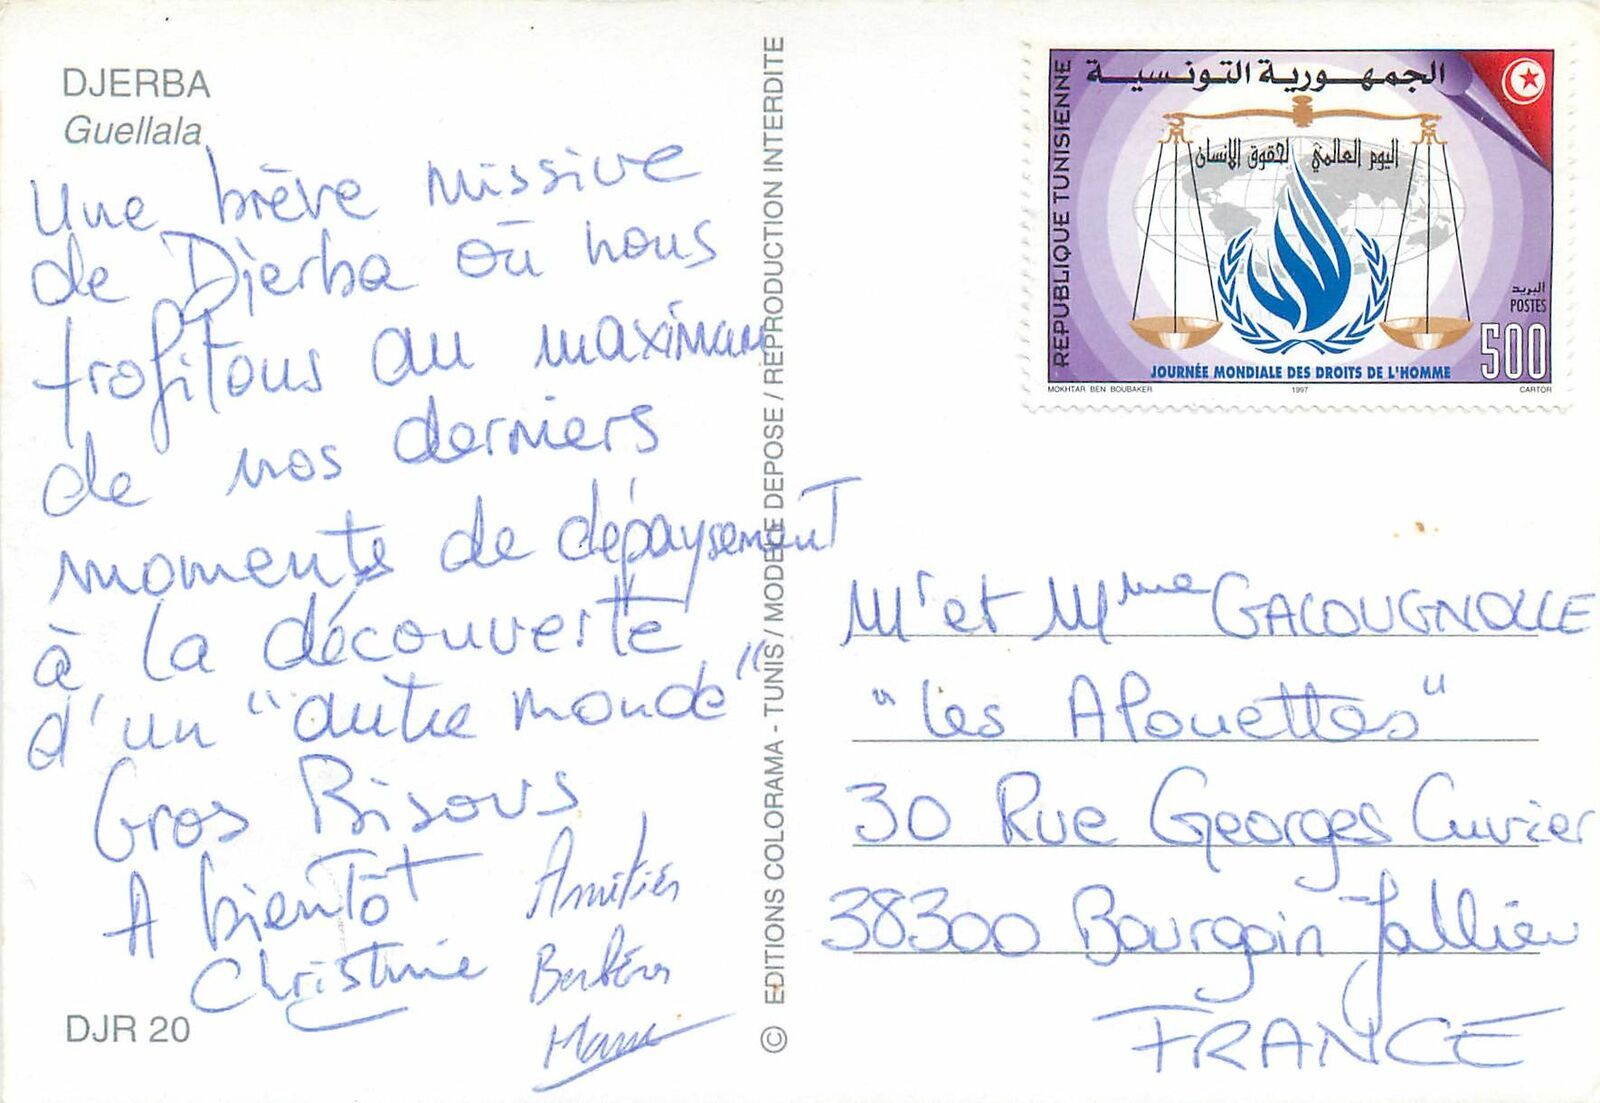 DJERBA
Guellala
Une brève missive
de Djerba où nous
profitons au maximum
de nos derniers
moments de dépaysement
à la découverte
d'un "autre monde"
Gros Bisous
A bientôt
Christine
Amitiés
Berbères
DJR 20
© EDITIONS COLORAMA - TUNIS / MODELE DEPOSE / REPRODUCTION INTERDITE
الجمهورية التونسية
REPUBLIQUE TUNISIENNE
اليوم العالمي لحقوق الانسان
البريد
POSTES
500
JOURNÉE MONDIALE DES DROITS DE L'HOMME
MOKHTAR BEN BOUBAKER 1997 CARTOR
Mr et Mme GALOUGNOLLE
"Les Alouettes"
30 Rue Georges Cuvier
38300 Bourgoin Jallieu
FRANCE